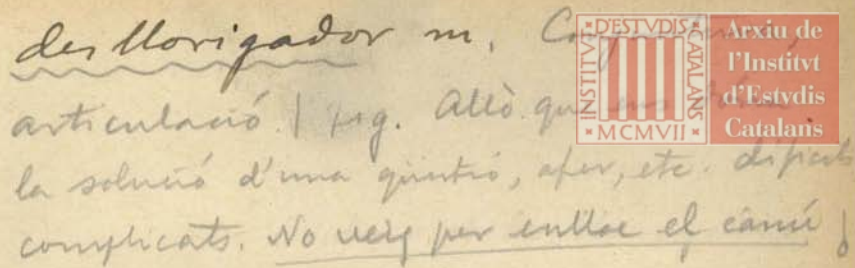 desllorigador m. Conjuntura
articulació. | fig. Allò que ens dóna
la solució d'una qüestió, afer, etc. difícils
complicats. No veig per enlloc el camí
INSTITVT D'ESTVDIS CATALANS MCMVII
Arxiu de
l'Institvt
d'Estvdis
Catalans